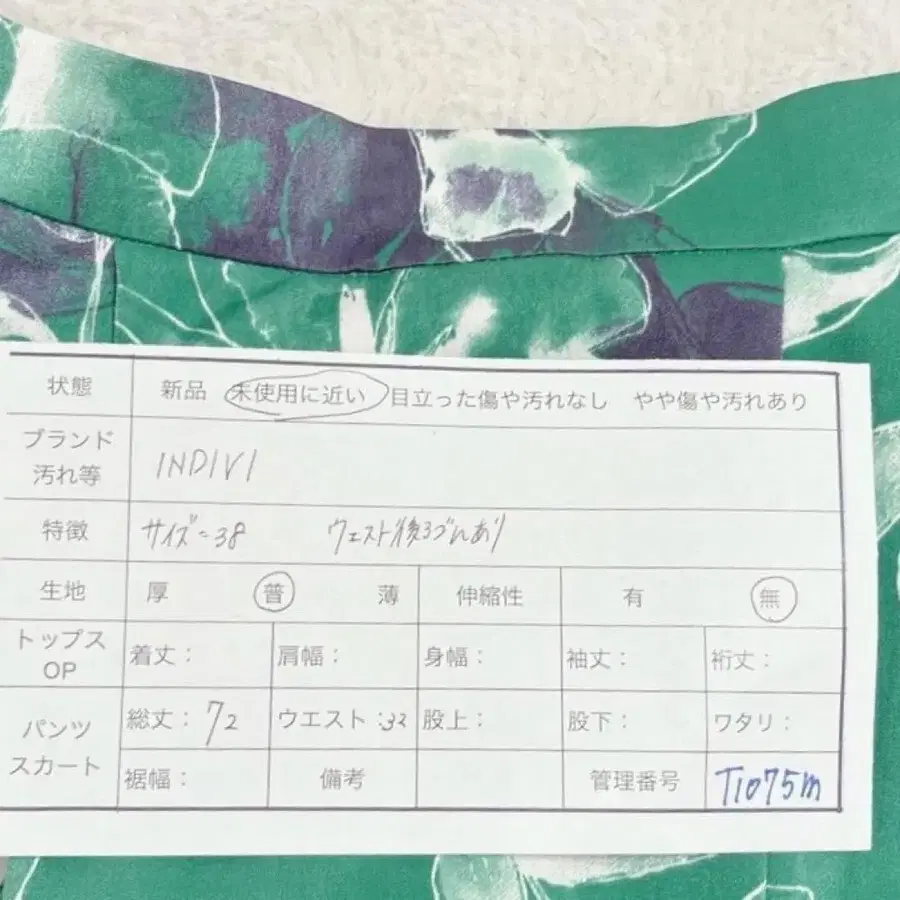 状態 新品 未使用に近い 目立った傷や汚れなし やや傷や汚れあり
ブランド
汚れ等 INDIVI
特徴 サイズ:38 ウエスト後ろゴムあり
生地 厚 普 薄 伸縮性 有 無
トップス
OP 着丈: 肩幅: 身幅: 袖丈: 裄丈:
パンツ
スカート 総丈:72 ウエスト:32 股上: 股下: ワタリ:
裾幅: 備考 管理番号 T1075m